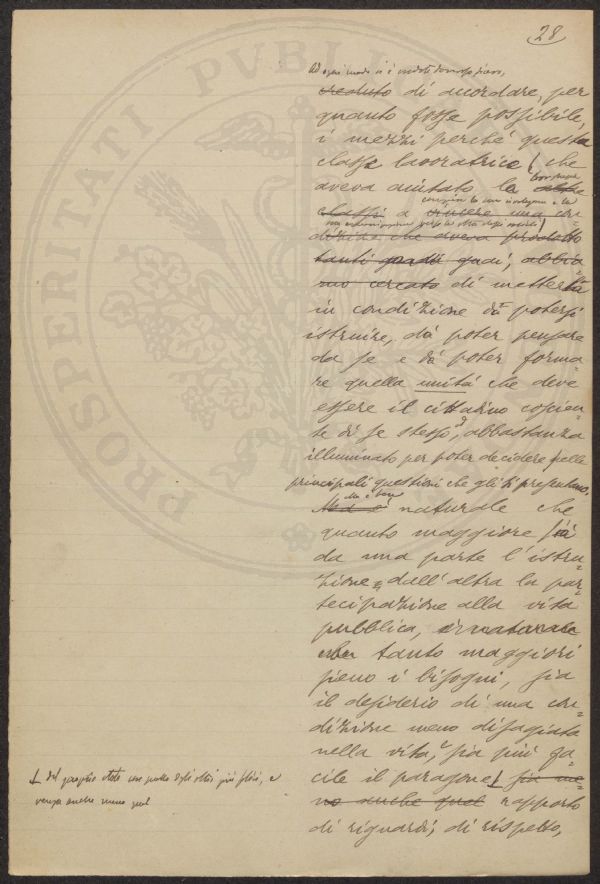 28
Ad ogni modo si è
creduto di accordare, per
quanto fosse possibile,
i mezzi perché questa
classe lavoratrice (che
aveva aiutato la
classi a vincere una con
dizione che aveva prodotto
tanti guai, abbia
mo cercato di metterla
in condizione da potersi
istruire, da poter pensare
da se e da poter forma
re quella unità che deve
essere il cittadino coscien
te di se stesso, abbastanza
illuminato per poter decidere
principali questioni che gli si presentano.
Ma è naturale che
quanto maggiore sia
da una parte l'istru
zione, dall'altra la par
tecipazione alla vita
pubblica,
tanto maggiori
sieno i bisogni, sia
il desiderio di una con
dizione meno disagiata
nella vita, sia più fa
cile il paragone sia me
no anche quel rapporto
di riguardi, di rispetto,
del proprio stato con quello degli altri più felici, e
venga anche meno quel
PROSPERITATI PVBLI